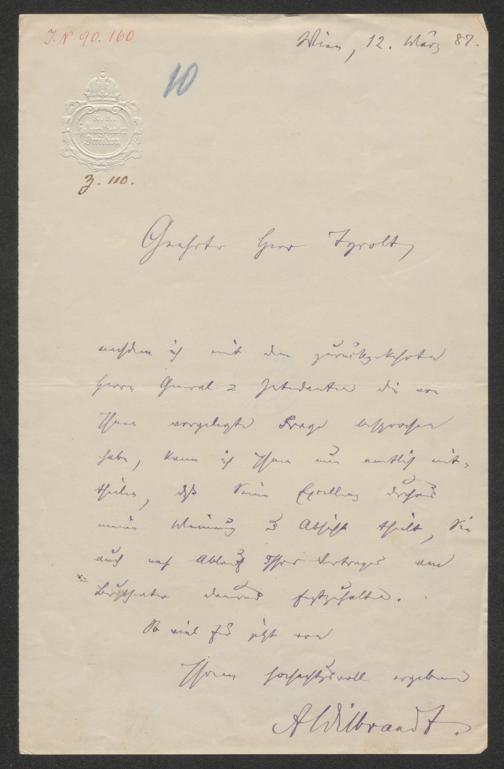 J.N 90.160
Wien, 12. März 87.
10
K. K.
Direction
Z. 110.
Geehrter Herr Tyrolt,
nachdem ich mit dem zurückgekehrten
Herrn General = Intendanten die von
Ihnen vorgelegte Frage besprochen
habe, kann ich Ihnen nur amtlich mit-
theilen, daß Seine Excellenz durchaus
meine Meinung & Absicht theilt, Sie
auch nach Ablauf Ihres Vertrages am
Burgtheater dauernd festzuhalten.
So viel für jetzt von
Ihrem hochachtungsvoll ergebenen
AWilbrandt.